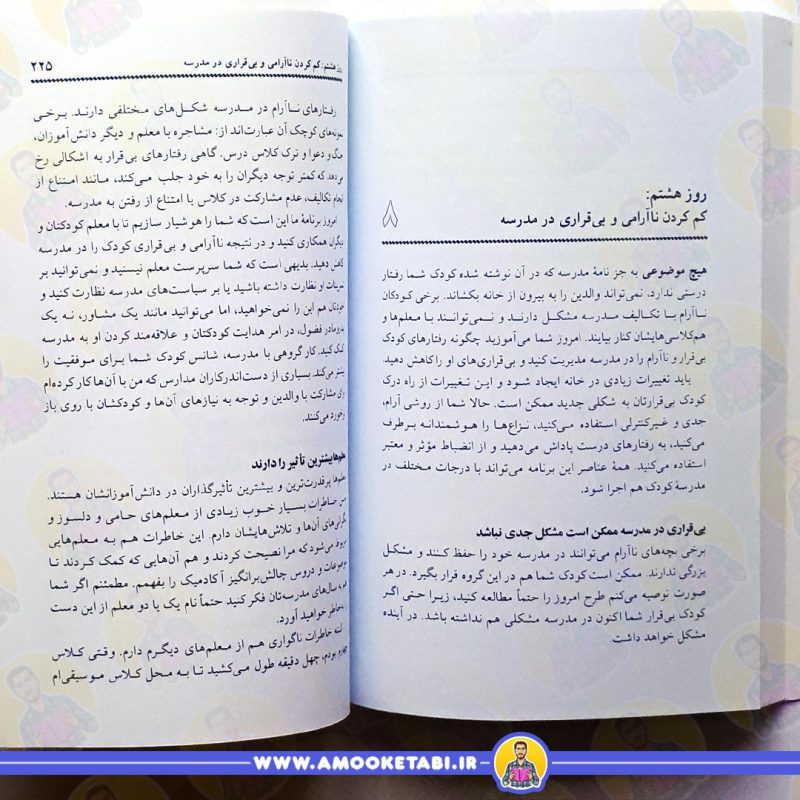 روز هشتم:
کم کردن ناآرامی و بی‌قراری در مدرسه
۸
هیچ موضوعی به جز نامهٔ مدرسه که در آن نوشته شده کودک شما رفتار
درستی ندارد، نمی‌تواند والدین را به بیرون از خانه بکشاند. برخی کودکان
ناآرام با تکالیف مدرسه مشکل دارند و نمی‌توانند با معلم‌ها و
هم‌کلاسی‌هایشان کنار بیایند. امروز شما می‌آموزید چگونه رفتارهای کودک
بی‌قرار و ناآرام را در مدرسه مدیریت کنید و بی‌قراری‌های او را کاهش دهید.
باید تغییرات زیادی در خانه ایجاد شود و این تغییرات از راه درک
کودک بی‌قرارتان به شکلی جدید ممکن است. حالا شما از روشی آرام،
جدی و غیرکنترلی استفاده می‌کنید، نزاع‌ها را هوشمندانه برطرف
می‌کنید، به رفتارهای درست پاداش می‌دهید و از انضباط مؤثر و معتبر
استفاده می‌کنید. همهٔ عناصر این برنامه می‌تواند با درجات مختلف در
مدرسهٔ کودک هم اجرا شود.
بی‌قراری در مدرسه ممکن است مشکل جدی نباشد
برخی بچه‌های ناآرام می‌توانند در مدرسه خود را حفظ کنند و مشکل
بزرگی ندارند. ممکن است کودک شما هم در این گروه قرار بگیرد. در هر
صورت توصیه می‌کنم طرح امروز را حتماً مطالعه کنید، زیرا حتی اگر
کودک بی‌قرار شما اکنون در مدرسه مشکلی هم نداشته باشد. در آینده
مشکل خواهد داشت
روز هشتم: کم کردن ناآرامی و بی‌قراری در مدرسه ۲۲۵
رفتارهای ناآرام در مدرسه شکل‌های مختلفی دارند. برخی
نمونه‌های کوچک آن عبارت‌اند از: مشاجره با معلم و دیگر دانش‌آموزان،
جنگ و دعوا و ترک کلاس درس. گاهی رفتارهای بی‌قرار به اشکالی رخ
می‌دهد که کمتر توجه دیگران را به خود جلب می‌کند، مانند امتناع از
انجام تکالیف، عدم مشارکت در کلاس یا امتناع از رفتن به مدرسه.
امروز برنامهٔ ما این است که شما را هوشیار سازیم تا با معلم کودکتان و
دیگران همکاری کنید و در نتیجه ناآرامی و بی‌قراری کودک را در مدرسه
کاهش دهید. بدیهی است که شما سرپرست معلم نیستید و نمی‌توانید بر
او نظارت داشته باشید یا بر سیاست‌های مدرسه نظارت کنید و
خودتان هم این را نمی‌خواهید، اما می‌توانید مانند یک مشاور، نه یک
پدرومادر فضول، در امر هدایت کودکتان و علاقه‌مند کردن او به مدرسه
کمک کنید. کار گروهی با مدرسه، شانس کودک شما برای موفقیت را
بیشتر می‌کند. بسیاری از دست‌اندرکاران مدارس که من با آن‌ها کار کرده‌ام
برای مشارکت با والدین و توجه به نیازهای آن‌ها و کودکشان با روی باز
برخورد می‌کنند.
معلم‌ها بیشترین تأثیر را دارند
معلم‌ها پرقدرت‌ترین و بیشترین تأثیرگذاران در دانش‌آموزانشان هستند.
من خاطرات بسیار خوب زیادی از معلم‌های حامی و دلسوز و
نگرانی‌های آن‌ها و تلاش‌هایشان دارم. این خاطرات هم به معلم‌هایی
مربوط می‌شود که مرا نصیحت کردند و هم آن‌هایی که کمک کردند تا
موضوعات و دروس چالش‌برانگیز آکادمیک را بفهمم. مطمئنم اگر شما
هم به سال‌های مدرسه‌تان فکر کنید حتماً نام یک یا دو معلم از این دست
به‌خاطر خواهید آورد.
البته خاطرات ناگواری هم از معلم‌های دیگرم دارم. وقتی کلاس
چهارم بودم، چهل دقیقه طول می‌کشید تا به محل کلاس موسیقی‌ام
WWW.AMOOKETABI.IR